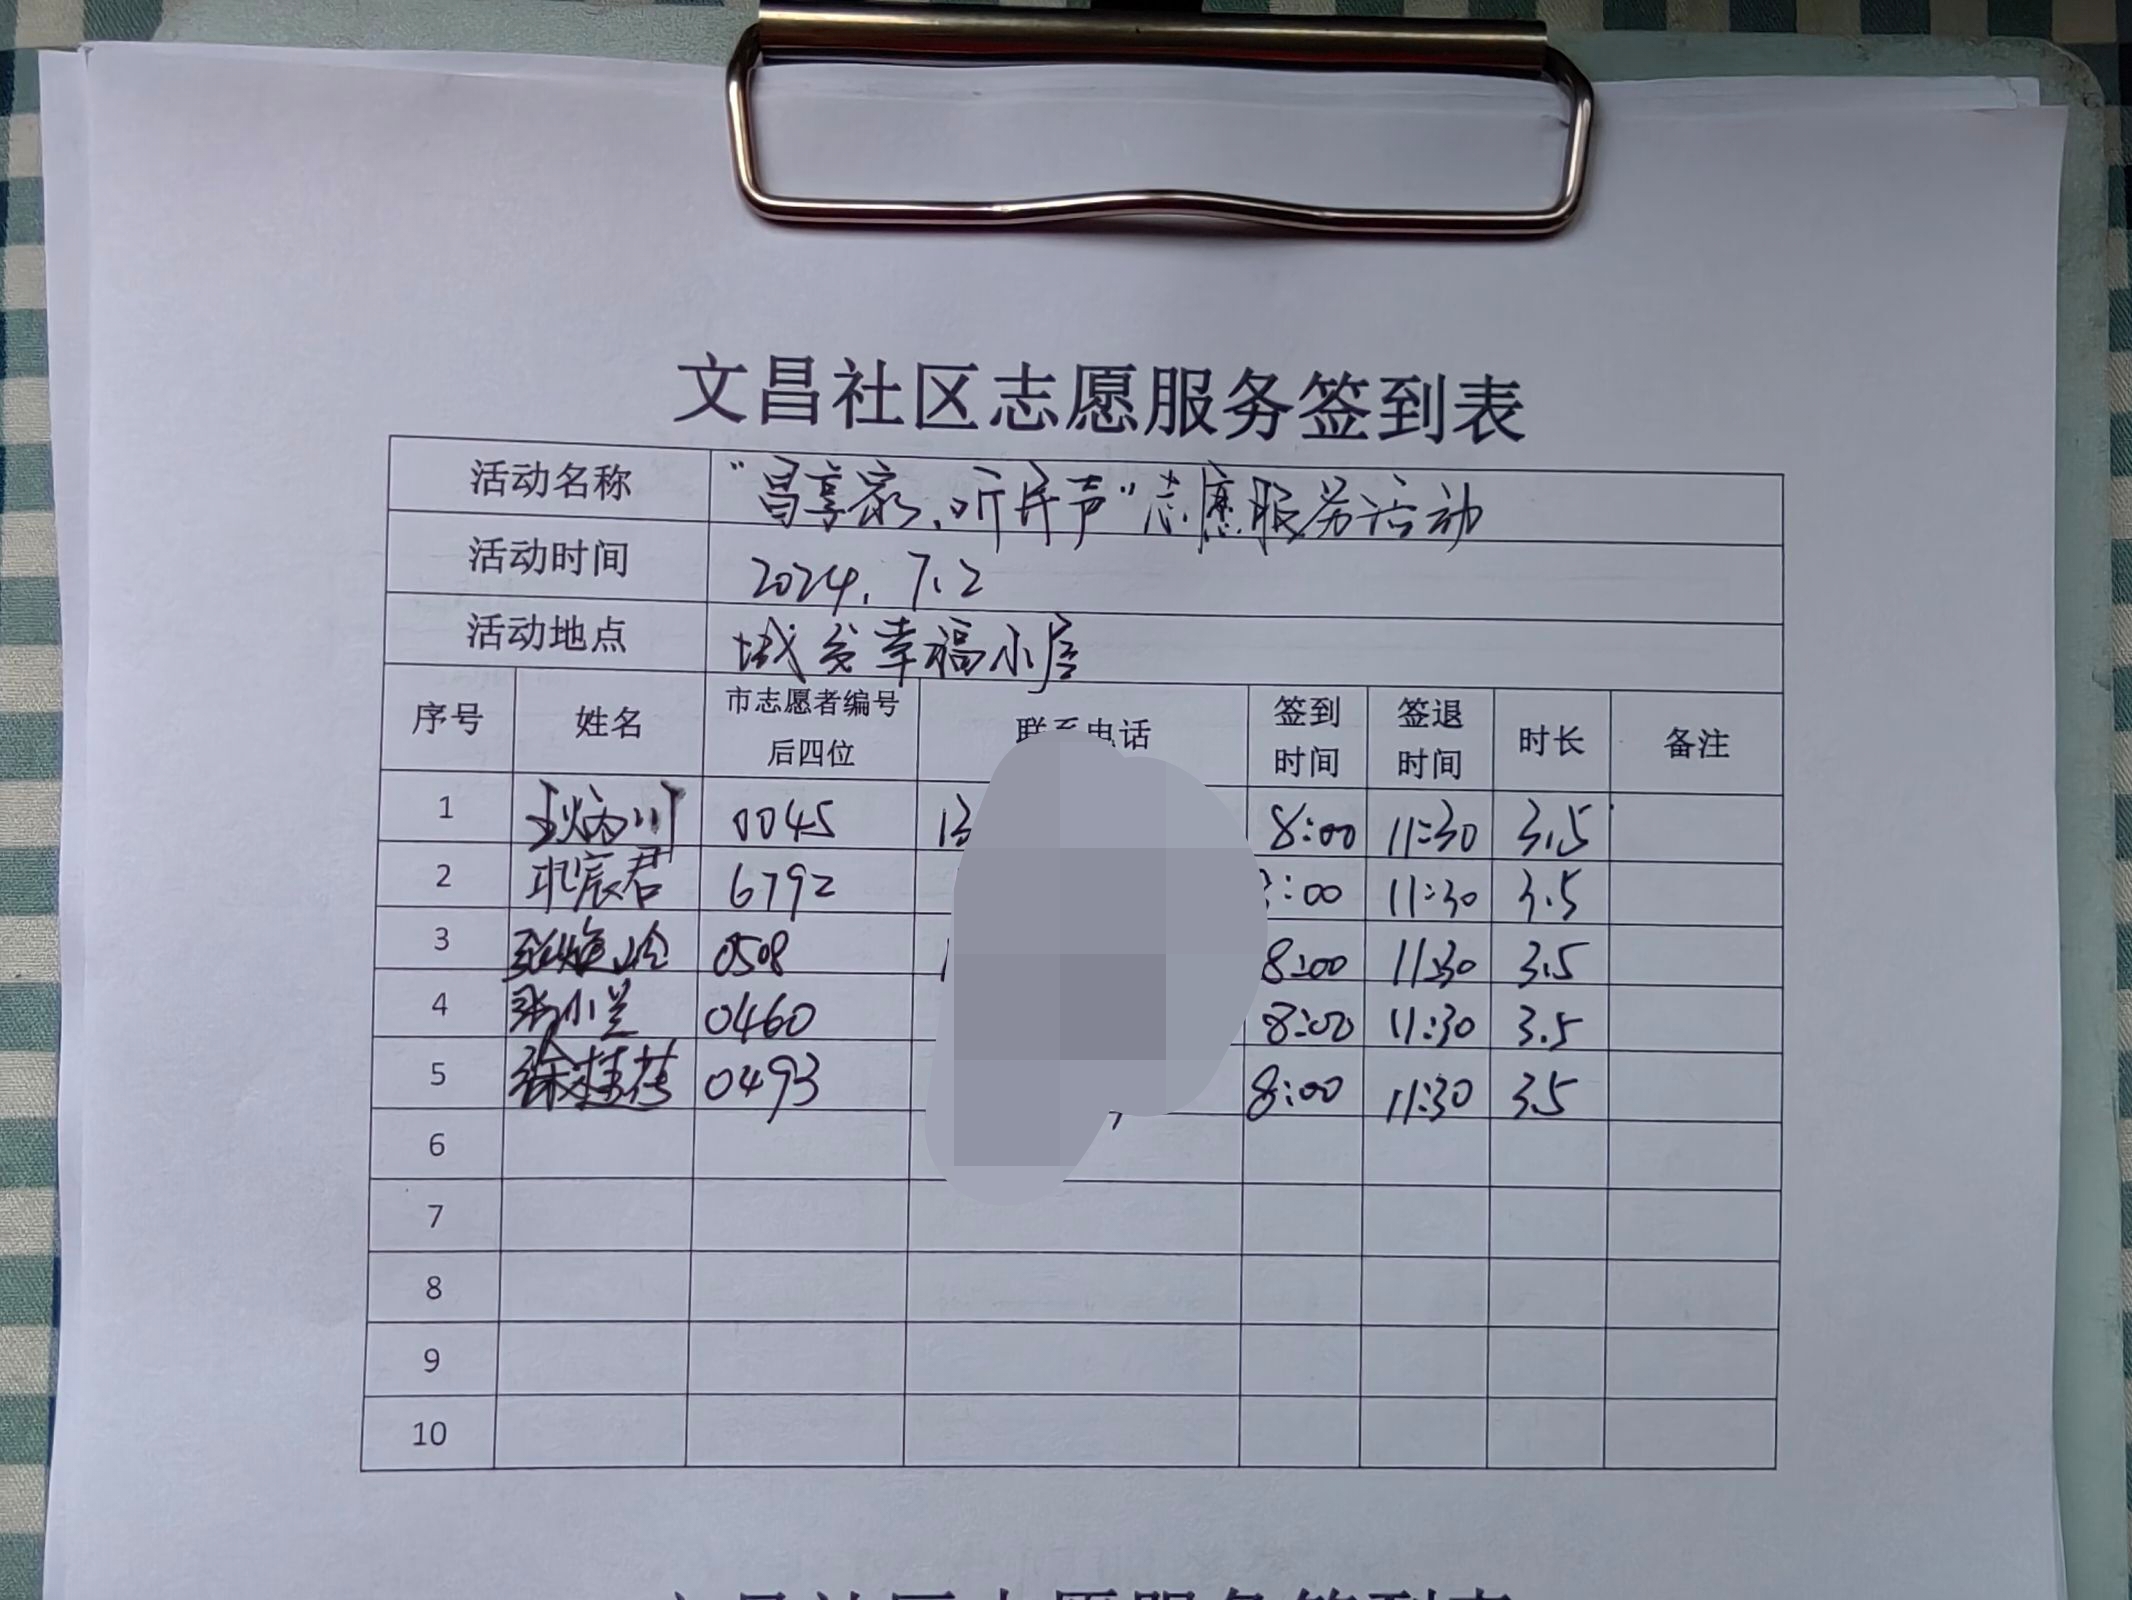 文昌社区志愿服务签到表
活动名称 "昌享家,听民声"志愿服务活动
活动时间 2024.7.2
活动地点 幸福小屋
序号 姓名 市志愿者编号后四位 联系电话 签到时间 签退时间 时长 备注
1 0045 13 8:00 11:30 3.5
2 辰君 6792 :00 11:30 3.5
3 0508 1 8:00 11:30 3.5
4 张小兰 0460 8:00 11:30 3.5
5 徐桂 0493 8:00 11:30 3.5
6
7
8
9
10
文昌社区志愿服务签到表